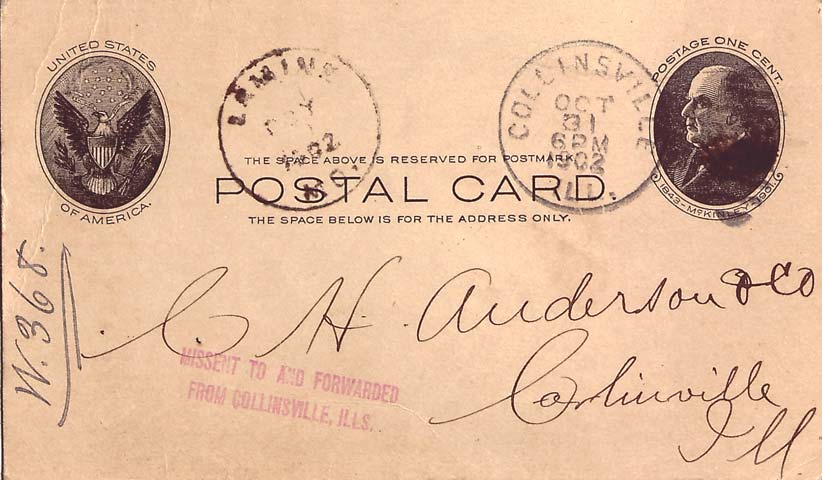 UNITED STATES
OF AMERICA.
LAMINE
1902
MO.
COLLINSVILLE
OCT
31
6 PM
1902
ILL.
POSTAGE ONE CENT.
1843-McKINLEY-1901.
THE SPACE ABOVE IS RESERVED FOR POSTMARK
POSTAL CARD
THE SPACE BELOW IS FOR THE ADDRESS ONLY.
W. 368.
C H. Anderson & Co
MISSENT TO AND FORWARDED
FROM COLLINSVILLE, ILLS.
Carlinville
Ill